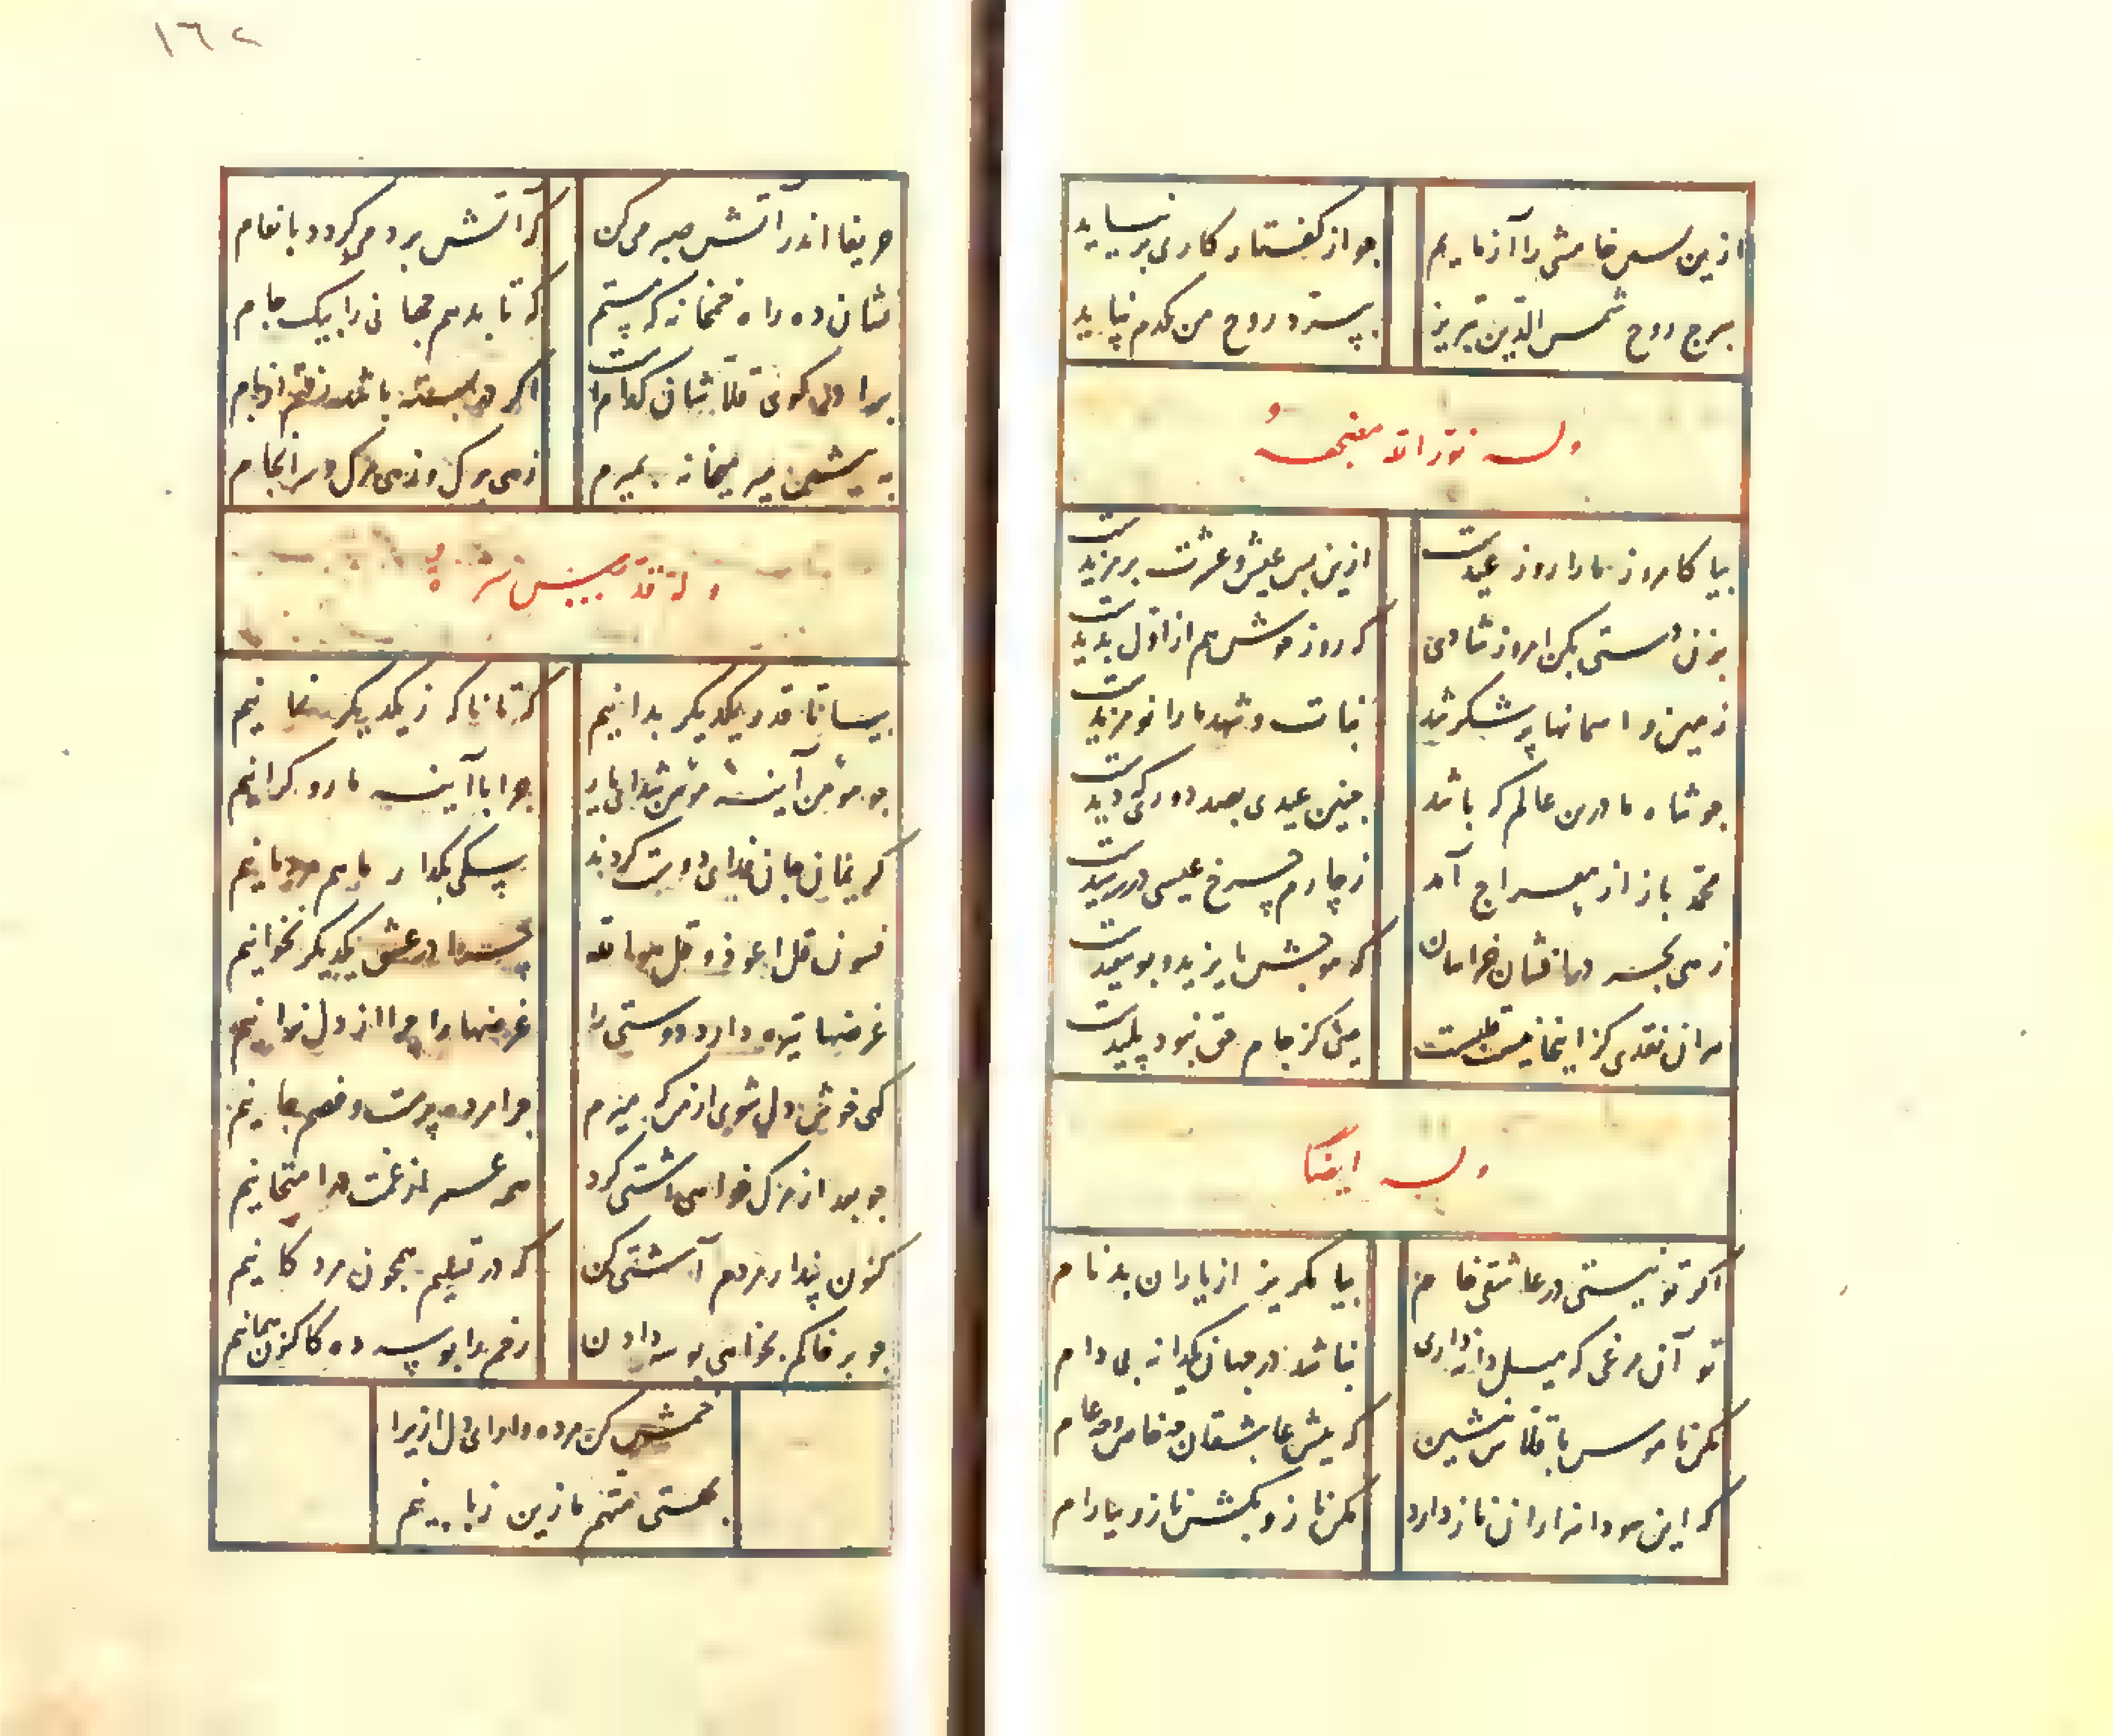 ازین پس خامشی را آزماییم
چو از گفتار کاری برنیاید
ببرج روح شمس الدین تبریز
بپرد روح من یکدم نپاید
وله نور الله مضجعه
بیا کامروز ما را روز عیدست
ازین پس عیش و عشرت بر مزیدست
بزن دستی بگو امروز شادی
که روز خوش هم از اول پدیدست
زمین و آسمانها پر شکر شد
نبات و شهد ما را نو مزیدست
چو شاه ما درین عالم که باشد
چنین عیدی بصد دور کی دیدست
محمد باز از معراج آمد
ز چارم چرخ عیسی در رسیدست
زهی درفشان خرامان
که موجش بایزید و بوسعیدست
هران نقدی کز اینجا نیست قلبست
میی کز جام حق نبود پلیدست
وله ایضا
اگر تو نیستی در عاشقی خام
بیا مگریز از یاران بدنام
تو آن مرغی که میل دانه داری
نباشد در جهان یکدانه بی دام
مکن ناموس با قلاش بنشین
که پیش عاشقان چه خاص و چه عام
که این سودا هزاران ناز دارد
مکن ناز و بکش ناز و بیارام
١٦٢
حریفا اندر آتش صبر می کن
که آتش برد می گردد بانعام
نشان ده راه خمخانه که مستم
که تا بدهم جهانی را بیک جام
برادر کوی قلاشان کدامست
اگر در بسته باشد رفتم از بام
به پیش پیر میخانه بمیرم
زهی مرگ و زهی برگ و سرانجام
وله قدس سره
بیا تا قدر یکدیگر بدانیم
که تا ناگه ز یکدیگر نمانیم
چو مؤمن آینه مؤمن شد ای یار
چرا با آینه ما رو گرانیم
کریمان جان فدای دوست کردند
سگی بگذار ما هم مردمانیم
فسون قل اعوذ و قل هو الله
چرا در عشق یکدیگر نخوانیم
غرضها تیره دارد دوستی را
غرضها را چرا از دل نرانیم
گهی خوش دل شوی از من که میرم
چرا مرده پرست و خصم جانیم
چو بعد از مرگ خواهی آشتی کرد
همه عمر از غمت در امتحانیم
کنون پندار مردم آشتی کن
که در تسلیم همچون مردگانیم
چو بر خاکم بخواهی بوسه دادن
رخم را بوسه ده کاکنون همانیم
خمش کن مرده وار ای دل ازیرا
بهستی متهم ما زین زبانیم